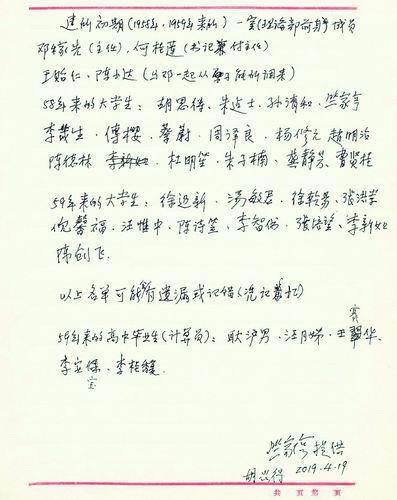 建所初期(1958年,1959年来所)一室(理论部前身)成员
邓稼先(主任),何桂莲(书记兼付主任)
王贻仁、陈水达(与邓一起从原子能所调来)
58年来的大学生:胡思得、朱建士、孙清和、竺家亨
李茂生、傅樱、蔡蔚、周泽良、杨修元、赵明治
陈德林、李新如、杜明笙、朱子楠、蔡静芸、曹贤桂
59年来的大学生:徐迺新、汤敏君、徐乾善、张洪
倪馨福、汪惟中、陈诗笠、李智、张培、李新如
陈创飞.
以上名单可能有遗漏或记错(凭记忆)
59年来的高中毕业生(计算员):耿沪男、汪月娣、王翠华、
赛
李宝保、李桂馥.
宝
竺家亨提供
胡思得 2019.4.19
共 页第 页